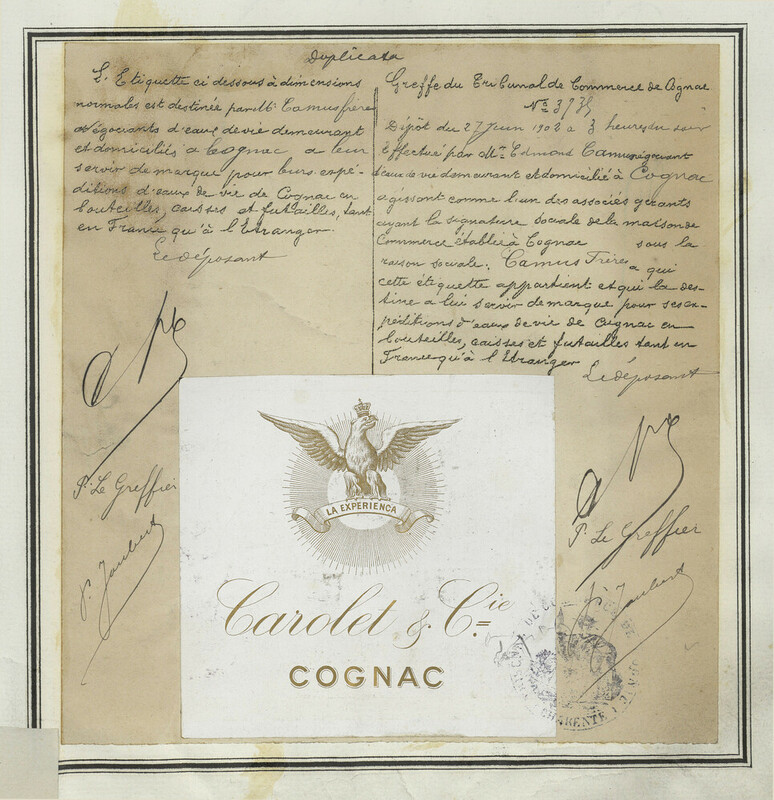 Duplicata
L'Etiquette ci dessous à dimensions
normales est destinée par Mr Camus frères
négociants d'eaux de vie demeurant
et domiciliés à Cognac a leur
servir de marque pour leurs expé-
ditions d'eaux de vie de Cognac en
bouteilles, caisses et futailles, tant
en France qu'à l'Etranger.
Le déposant
P. Le Greffier
Greffe du Tribunal de Commerce de Cognac
No
Dépôt du 27 Juin 1902 a 3 heures du soir
Effectué par Mr Edmond Camus négociant
d'eaux de vie demeurant et domicilié à Cognac
agissant comme l'un des associés gérants
ayant la signature sociale de la maison de
Commerce établie à Cognac sous la
raison sociale: Camus Frères a qui
cette étiquette appartient et qui la des-
tine a lui servir de marque pour ses ex-
péditions d'eaux de vie de Cognac en
bouteilles, caisses et futailles tant en
France qu'à l'Etranger
Le déposant
P. Le Greffier
LA EXPERIENCA
Carolet & Cie
COGNAC
CHARENTE